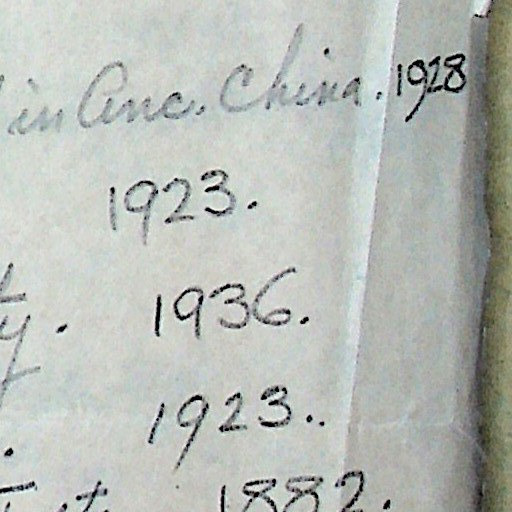 in Anc. China. 1928
1923.
y. 1936.
1923..
1882.